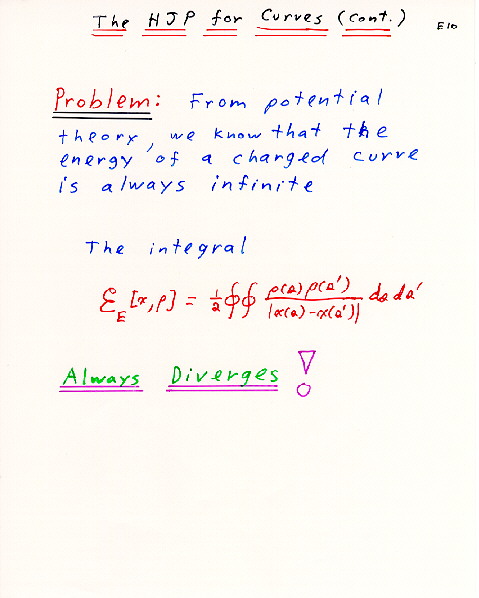 The HJP for Curves (cont.)
E10
Problem: From potential
theory, we know that the
energy of a charged curve
is always infinite
The integral
ℰ_E[x,ρ] = ½ ∮∮ ρ(s)ρ(s') / |x(s) - x(s')| ds ds'
Always Diverges !